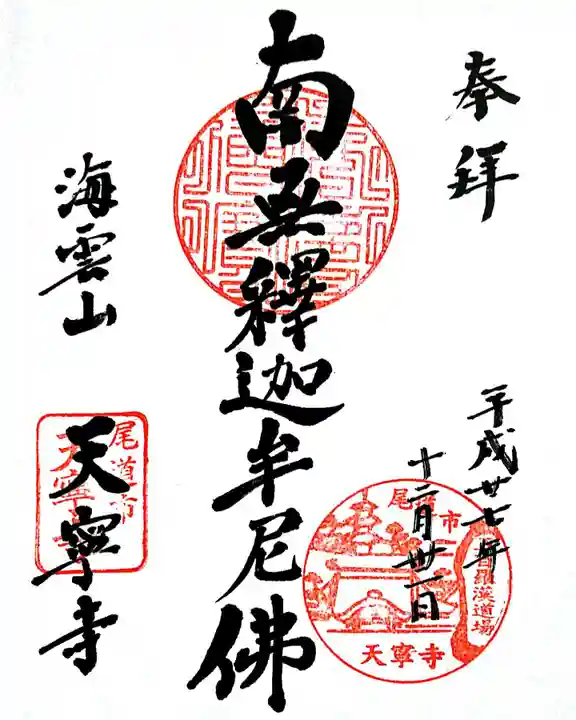 奉拝
平成廿七年
十二月卅一日
南無釋迦牟尼佛
海雲山
天寧寺
尾道市
天寧
尾道市
羅漢道場
天寧寺